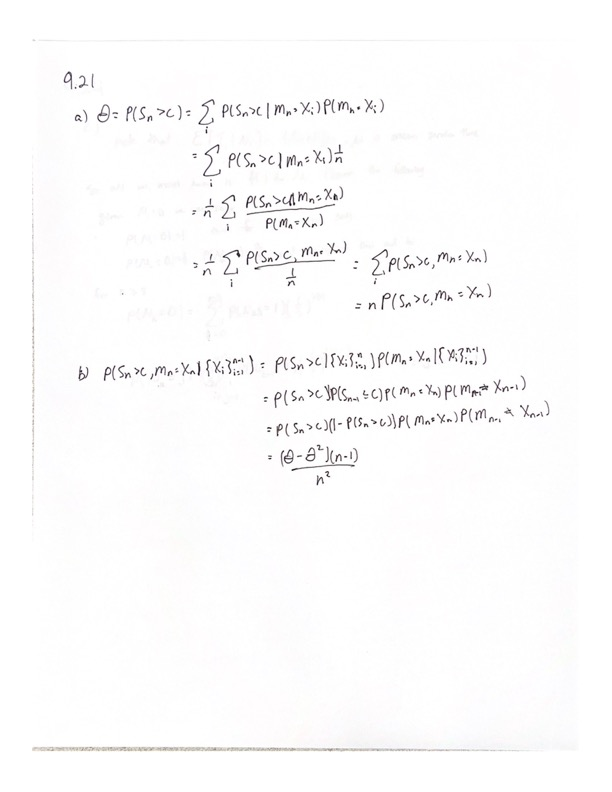 9.21
a) θ = P(Sn > c) = Σi P(Sn > c | Mn = Xi) P(Mn = Xi)
= Σi P(Sn > c | Mn = Xi) 1/n
= 1/n Σi P(Sn > c ∩ Mn = Xn) / P(Mn = Xn)
= 1/n Σi P(Sn > c, Mn = Xn) / (1/n) = Σi P(Sn > c, Mn = Xn)
= n P(Sn > c, Mn = Xn)
b) P(Sn > c, Mn = Xn | {Xi}i=1^n-1) = P(Sn > c | {Xi}i=1^n) P(Mn = Xn | {Xi}i=1^n-1)
= P(Sn > c) P(Sn-1 ≤ c) P(Mn = Xn) P(Mn-1 ≠ Xn-1)
= P(Sn > c)(1 - P(Sn > c)) P(Mn = Xn) P(Mn-1 ≠ Xn-1)
= (θ - θ²)(n-1) / n²